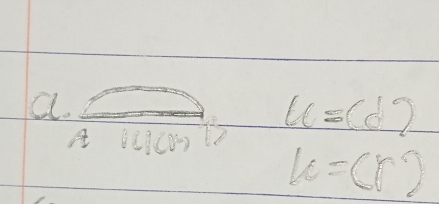 a.
A 14cm B
k=(d)
k=(r)